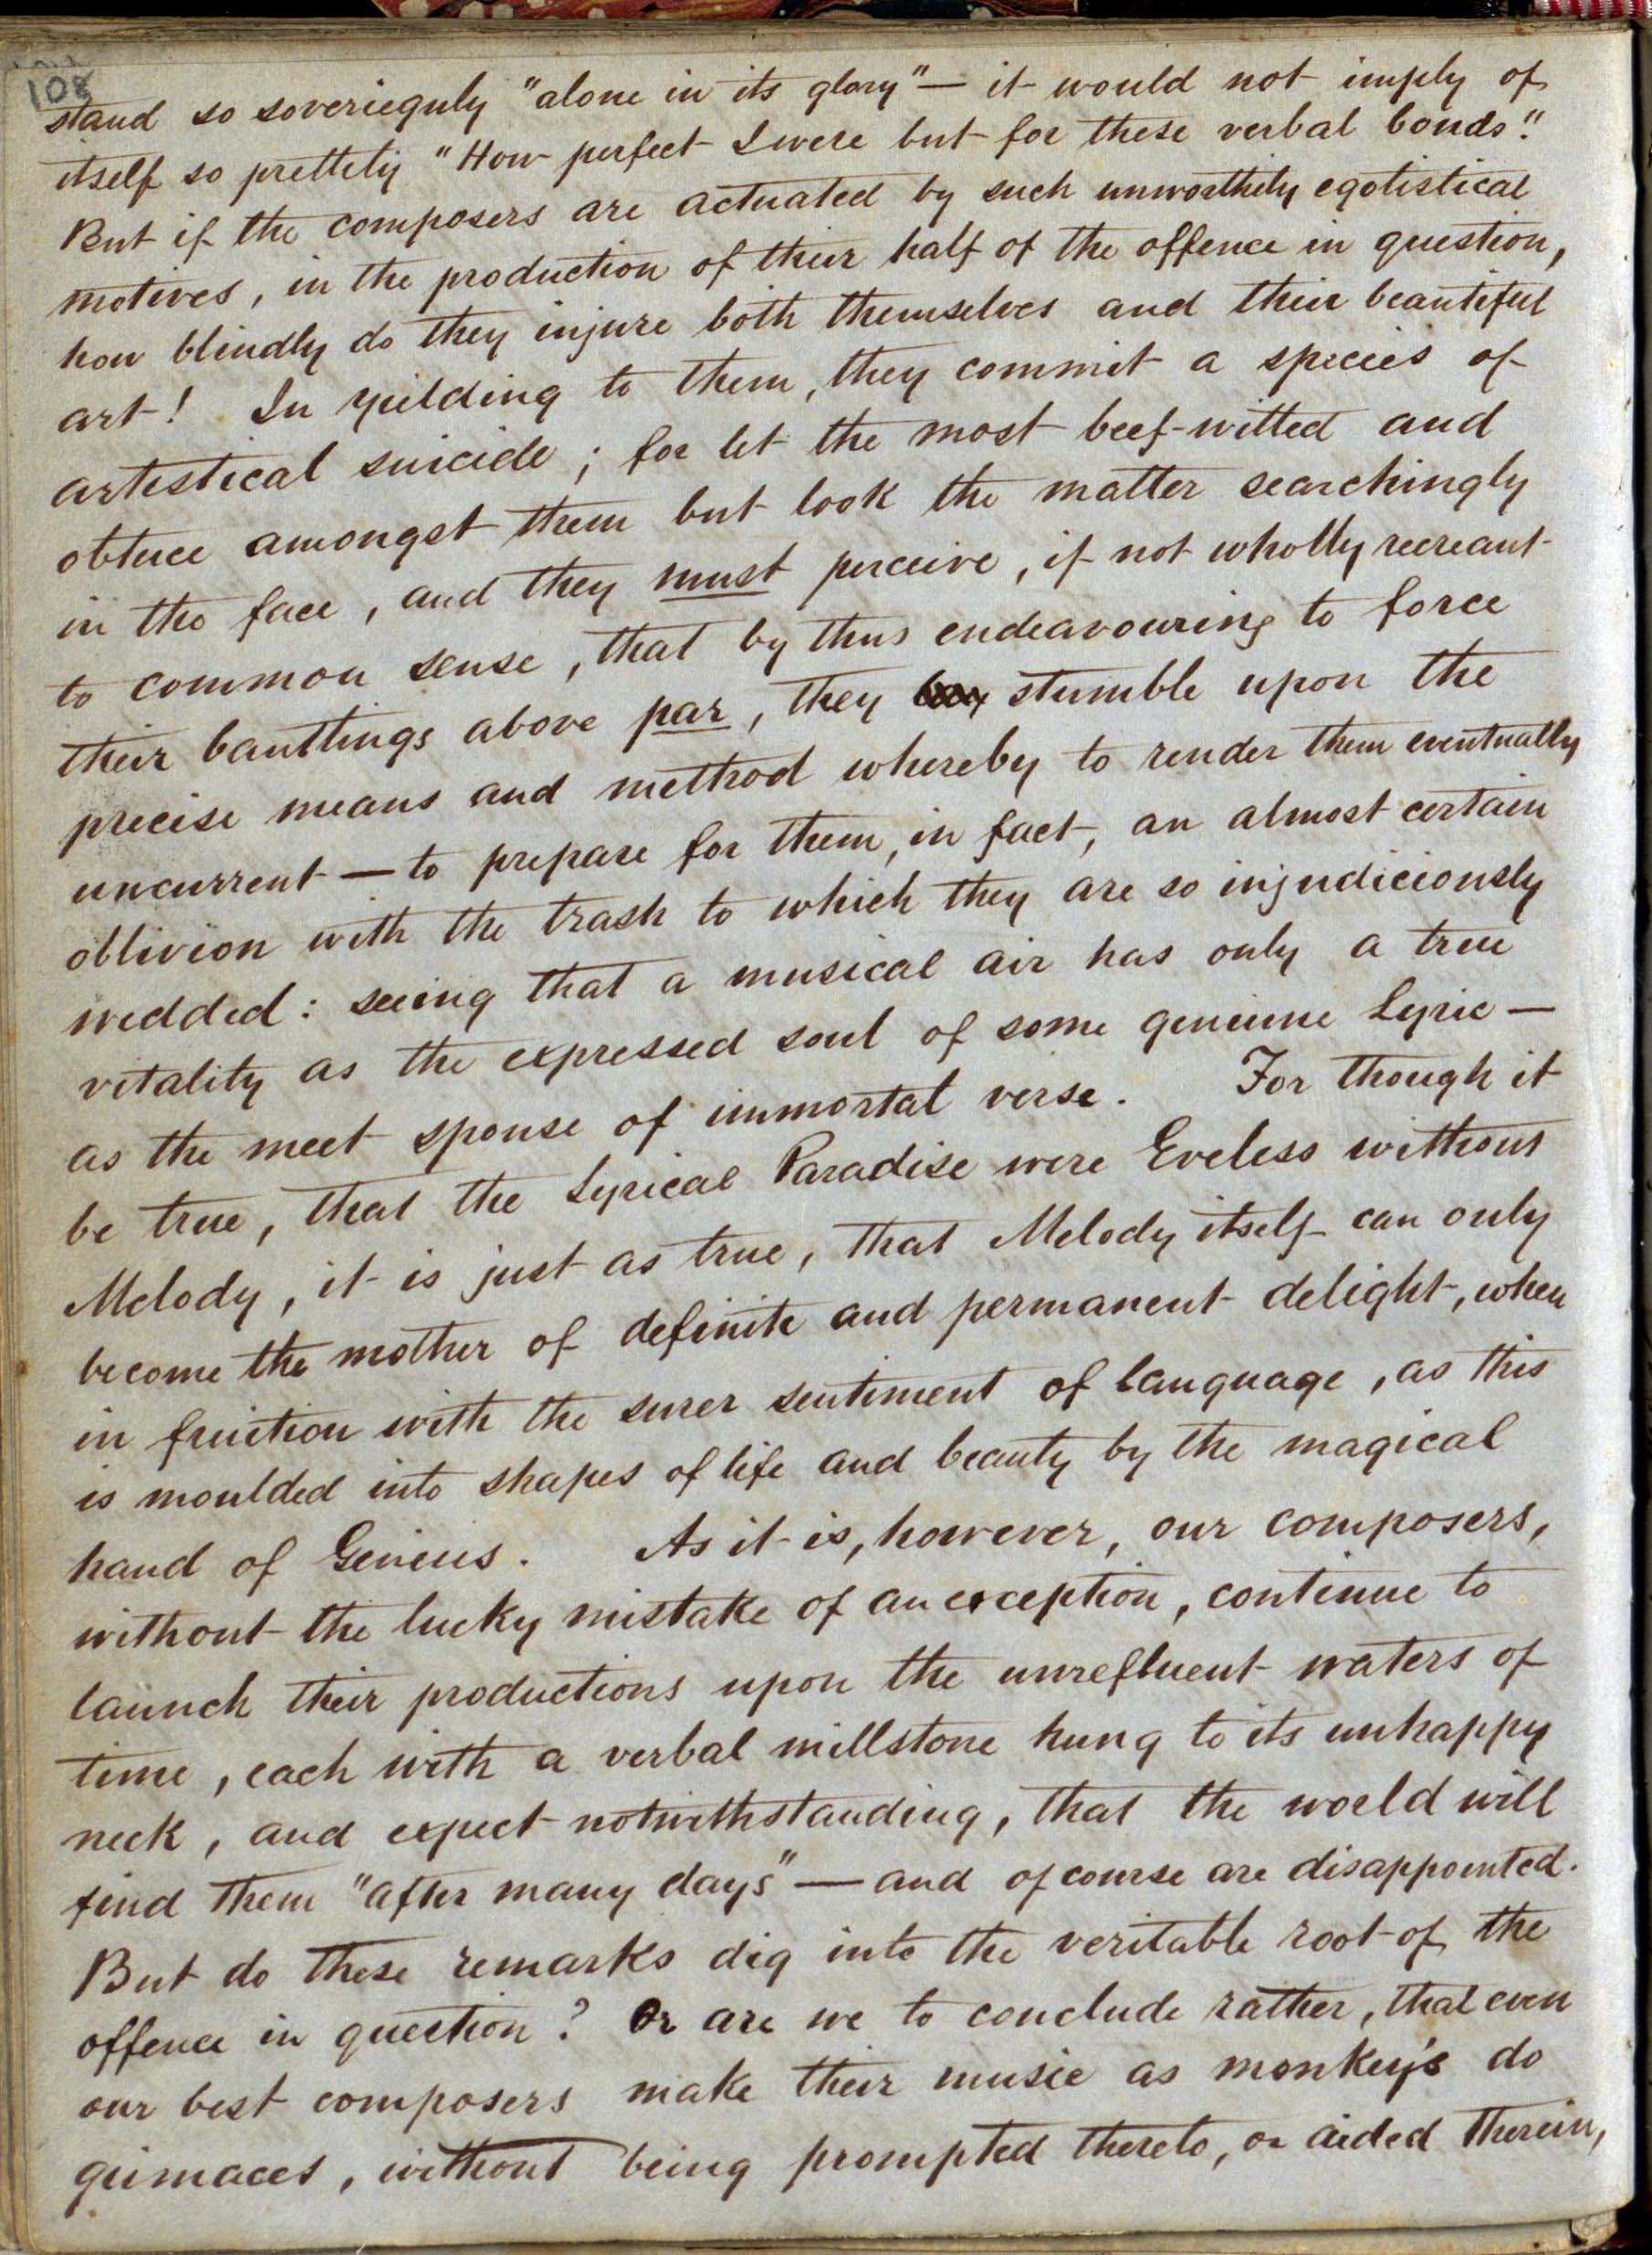 108
stand so soverieguly "alone in its glory" — it would not imply of
itself so prettily "How perfect I were but for these verbal bonds."
But if the composers are actuated by such unworthily egotistical
motives, in the production of their half of the offence in question,
how blindly do they injure both themselves and their beautiful
art! In yeilding to them, they commit a species of
artistical suicide; for let the most beef-witted and
obtuce amongst them but look the matter searchingly
in the face, and they must perceive, if not wholly recreant
to common sense, that by thus endeavouring to force
their bantlings above par, they stumble upon the
precise means and method whereby to render them eventually
uncurrent — to prepare for them, in fact, an almost certain
oblivion with the trash to which they are so injudiciously
wedded: seeing that a musical air has only a true
vitality as the expressed soul of some genuine Lyric —
as the meet spouse of immortal verse. For though it
be true, that the Lyrical Paradise were Eveless without
Melody, it is just as true, that Melody itself can only
become the mother of definite and permanent delight, when
in fruition with the surer sentiment of language, as this
is moulded into shapes of life and beauty by the magical
hand of Genius. As it is, however, our composers,
without the lucky mistake of an exception, continue to
launch their productions upon the unrefluent waters of
time, each with a verbal millstone hung to its unhappy
neck, and expect notwithstanding, that the world will
find them "after many days" — and of course are disappointed.
But do these remarks dig into the veritable root of the
offence in question? Or are we to conclude rather, that even
our best composers make their music as monkey's do
grimaces, without being prompted thereto, or aided therein,